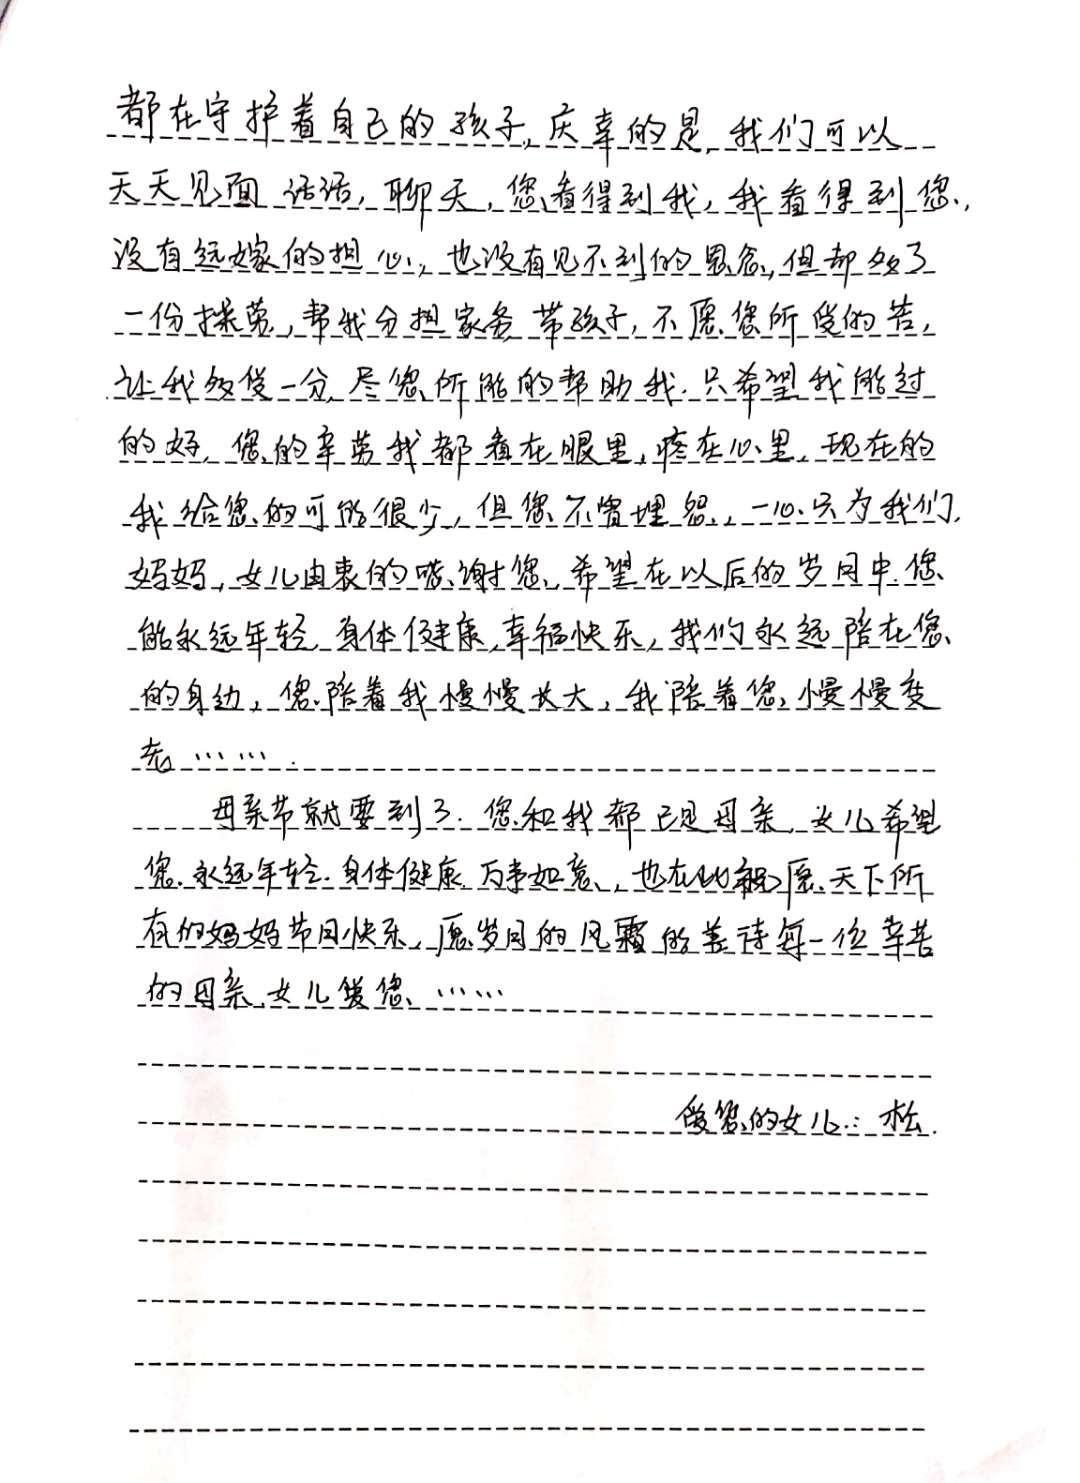 都在守护着自己的孩子,庆幸的是,我们可以
天天见面 话话,聊天,您看得到我,我看得到您,
没有远嫁的担心,也没有见不到的思念,但却多了
一份操劳,帮我分担家务 带孩子,不愿您所受的苦,
让我多受一分,尽您所能的帮助我.只希望我能过
的好,您的辛劳我都看在眼里,疼在心里,现在的
我给您的可能很少,但您不曾埋怨,一心只为我们,
妈妈,女儿由衷的感谢您,希望在以后的岁月中您
能永远年轻,身体健康,幸福快乐,我们永远陪在您
的身边,您陪着我慢慢长大,我陪着您慢慢变
老…….
母亲节就要到了.您和我都已是母亲,女儿希望
您永远年轻.身体健康 万事如意,也在此祝愿天下所
有的妈妈节日快乐,愿岁月的风霜能善待每一位辛苦
的母亲,女儿爱您……
爱您的女儿:松.